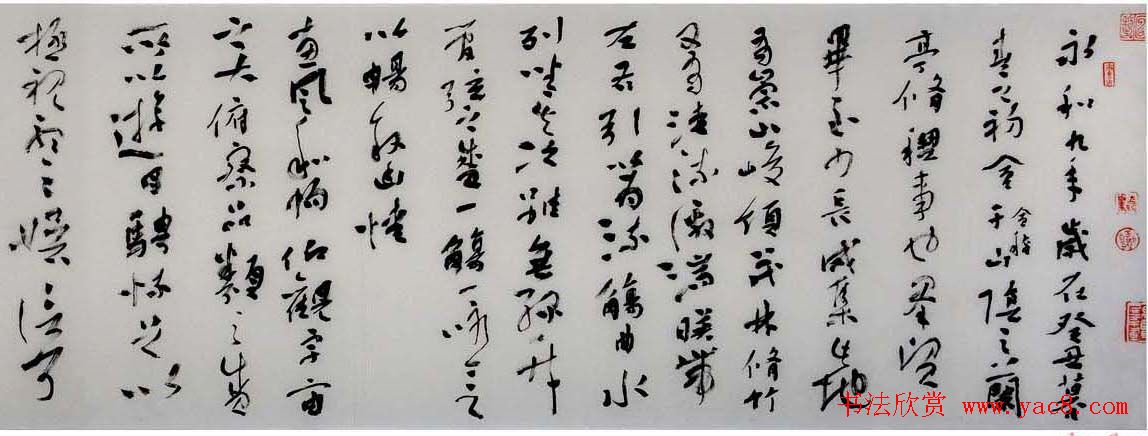 永和九年歲在癸丑暮
春之初會于會稽山陰之蘭
亭脩禊事也羣賢
畢至少長咸集此地
有崇山峻領茂林脩竹
又有清流激湍暎帶
左右引以爲流觴曲水
列坐其次雖無絲竹
管弦之盛一觴一詠亦足
以暢敘幽情
惠風和暢仰觀宇宙
之大俯察品類之盛
所以遊目騁懷足以
極視聽之娛信可
书法欣赏 www.yac8.com